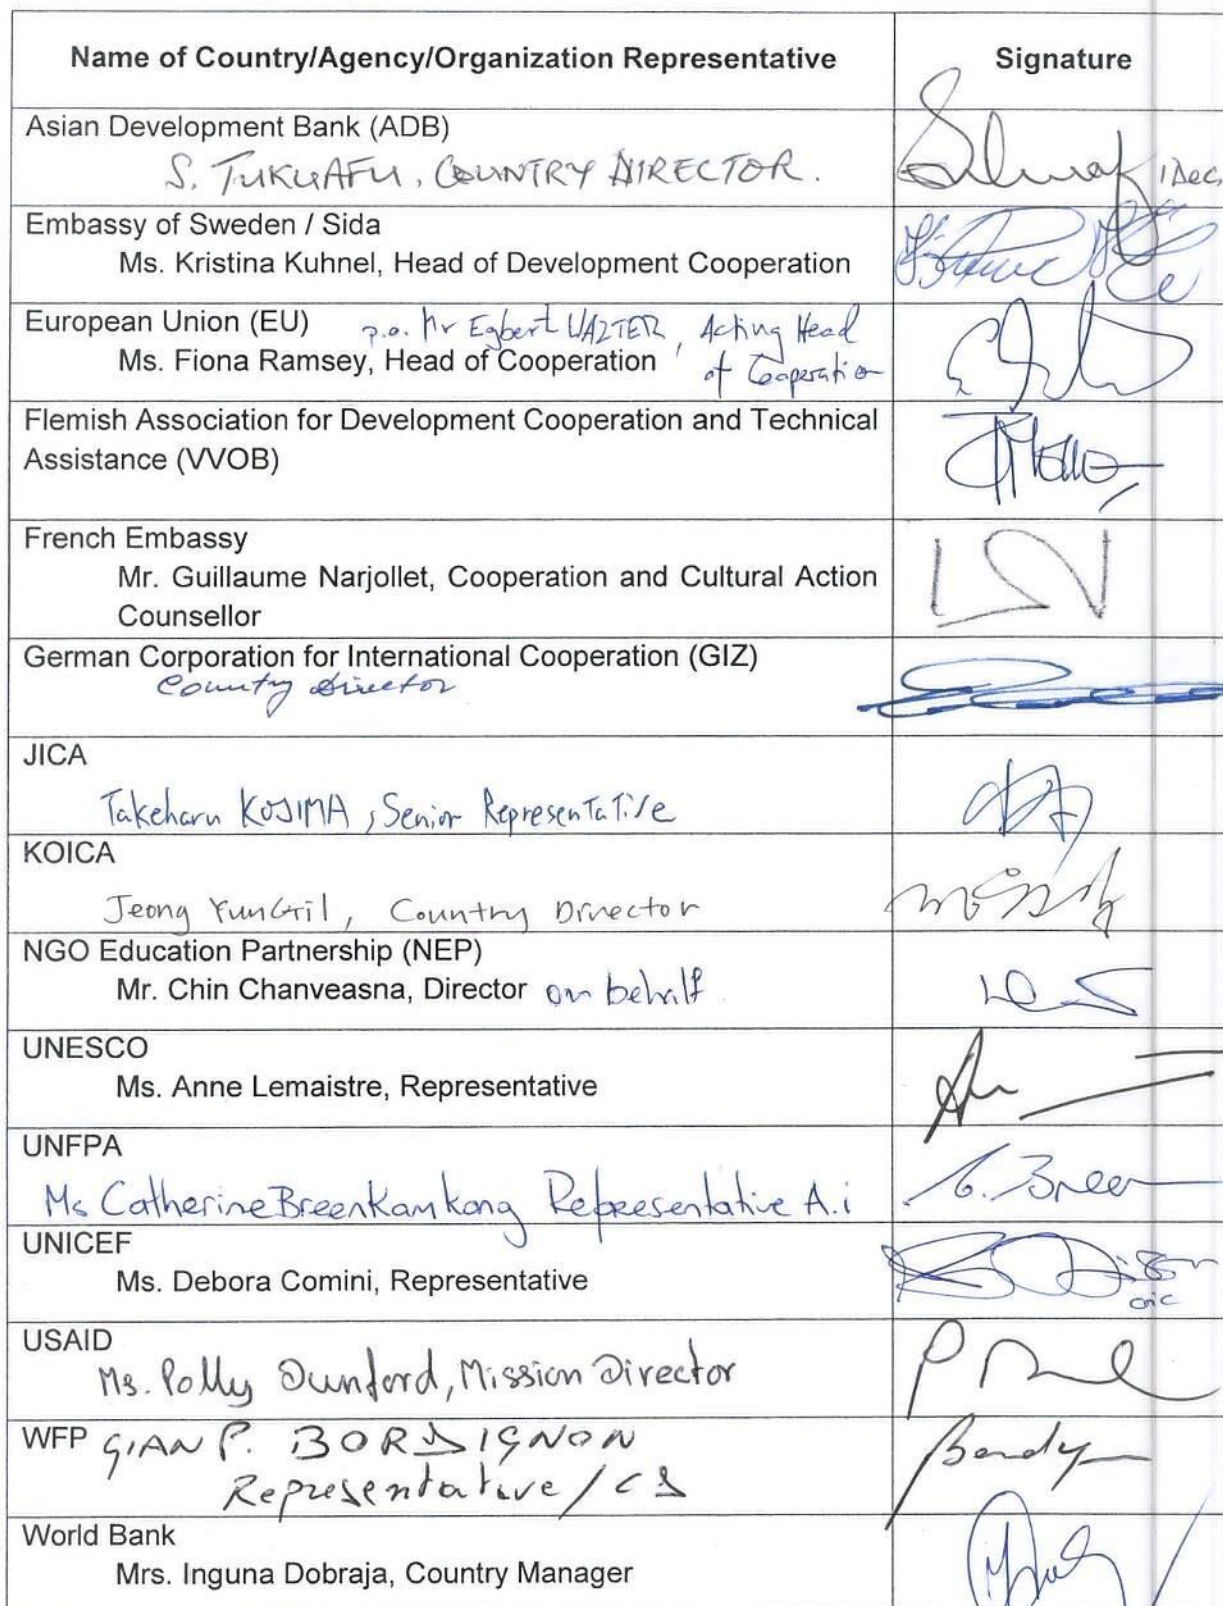 Name of Country/Agency/Organization Representative Signature
Asian Development Bank (ADB)
S. TUKUAFU, COUNTRY DIRECTOR.
1 Dec,
Embassy of Sweden / Sida
Ms. Kristina Kuhnel, Head of Development Cooperation
European Union (EU) p.o. Mr Egbert WALTER, Acting Head
Ms. Fiona Ramsey, Head of Cooperation of Cooperation
Flemish Association for Development Cooperation and Technical
Assistance (VVOB)
French Embassy
Mr. Guillaume Narjollet, Cooperation and Cultural Action
Counsellor
German Corporation for International Cooperation (GIZ)
Country Director
JICA
Takeharu KOJIMA, Senior Representative
KOICA
Jeong YunGil, Country Director
NGO Education Partnership (NEP)
Mr. Chin Chanveasna, Director on behalf
UNESCO
Ms. Anne Lemaistre, Representative
UNFPA
Ms Catherine Breenkamkong Representative A.i
UNICEF
Ms. Debora Comini, Representative
oic
USAID
Ms. Polly Dunford, Mission Director
WFP GIAN P. BORDIGNON
Representative/CD
World Bank
Mrs. Inguna Dobraja, Country Manager